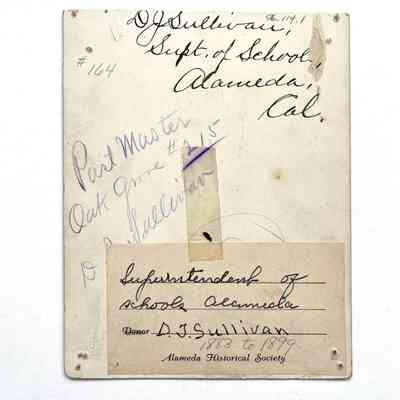 DJ Sullivan,
Supt. of Schools,
Alameda,
Cal.
#164
Past Master
Oak Grove # 215
D. J. Sullivan
Superintendent of
schools Alameda
Donor D.J. Sullivan
1883 to 1899
Alameda Historical Society